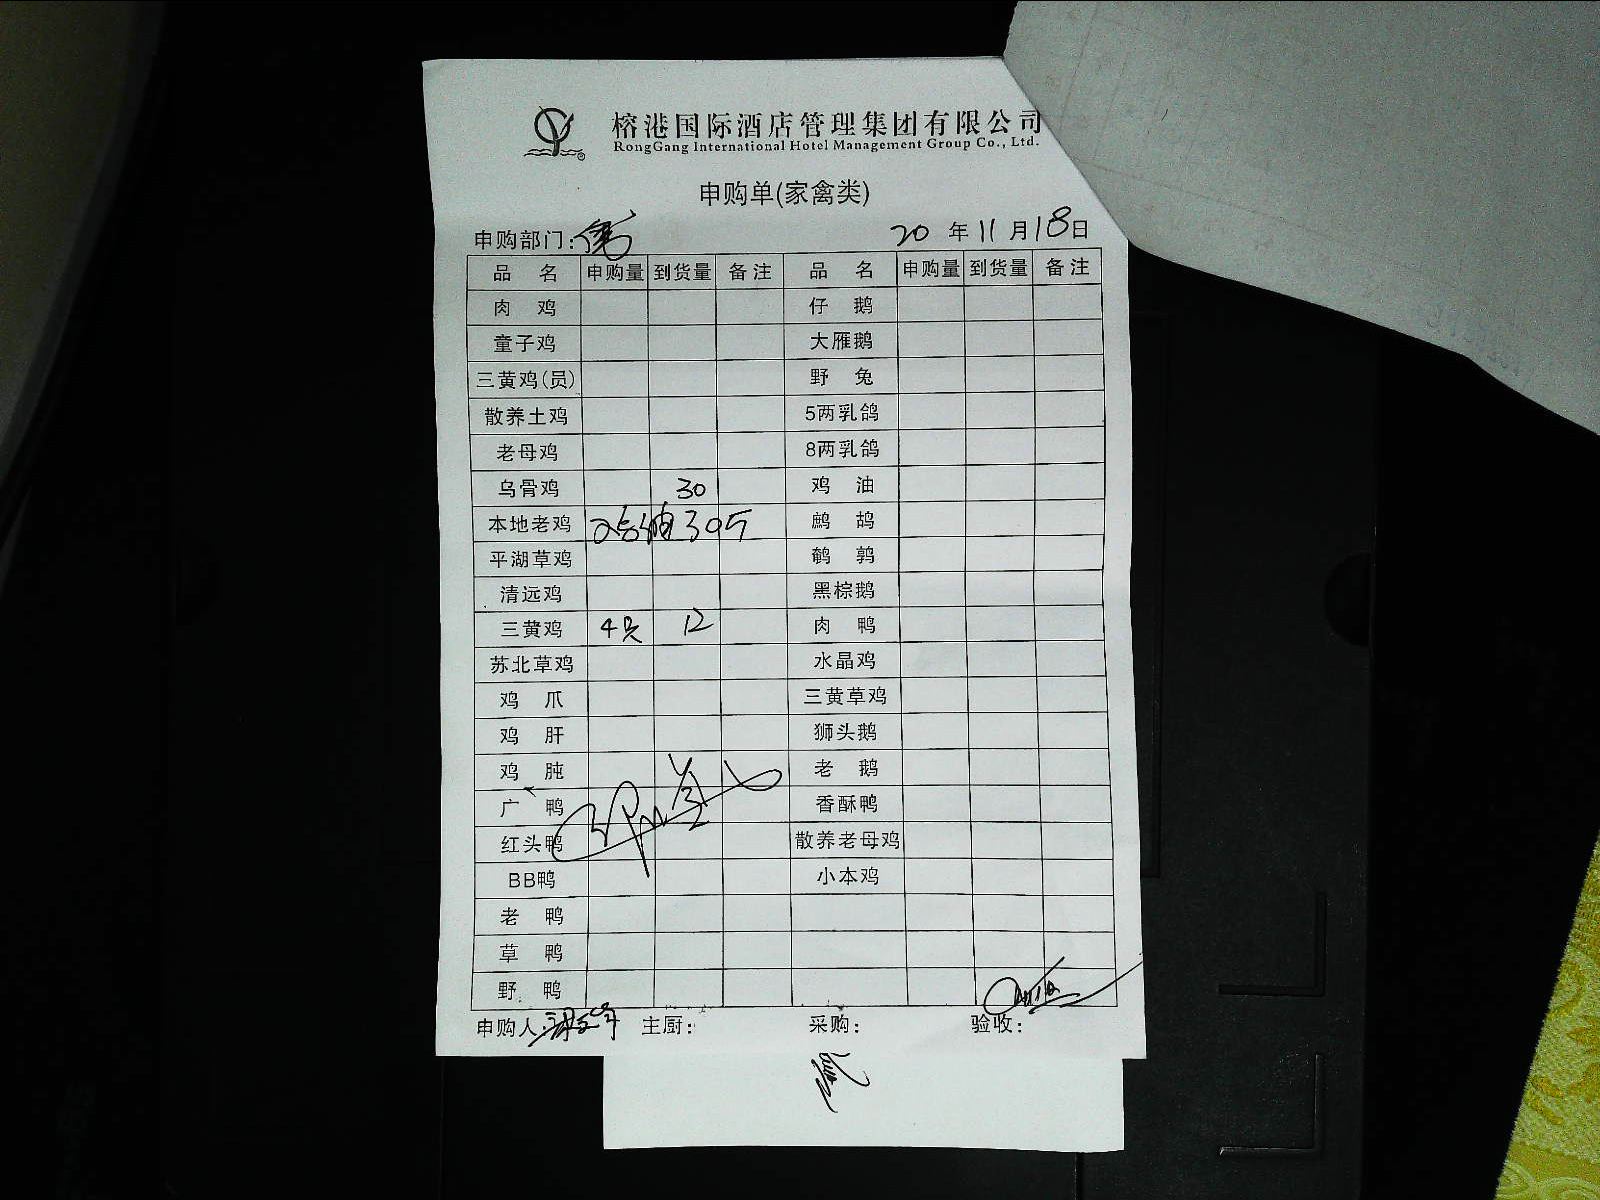 榕港国际酒店管理集团有限公司
RongGang International Hotel Management Group Co., Ltd.
申购单(家禽类)
申购部门:
20 年 11 月 18 日
品名 申购量 到货量 备注 品名 申购量 到货量 备注
肉鸡 仔鹅
童子鸡 大雁鹅
三黄鸡(员) 野兔
散养土鸡 5两乳鸽
老母鸡 8两乳鸽
乌骨鸡 30 鸡油
本地老鸡 油30斤 鹧鸪
平湖草鸡 鹌鹑
清远鸡 黑棕鹅
三黄鸡 4只 12 肉鸭
苏北草鸡 水晶鸡
鸡爪 三黄草鸡
鸡肝 狮头鹅
鸡肫 老鹅
广鸭 香酥鸭
红头鸭 散养老母鸡
BB鸭 小本鸡
老鸭
草鸭
野鸭
申购人: 主厨: 采购: 验收: